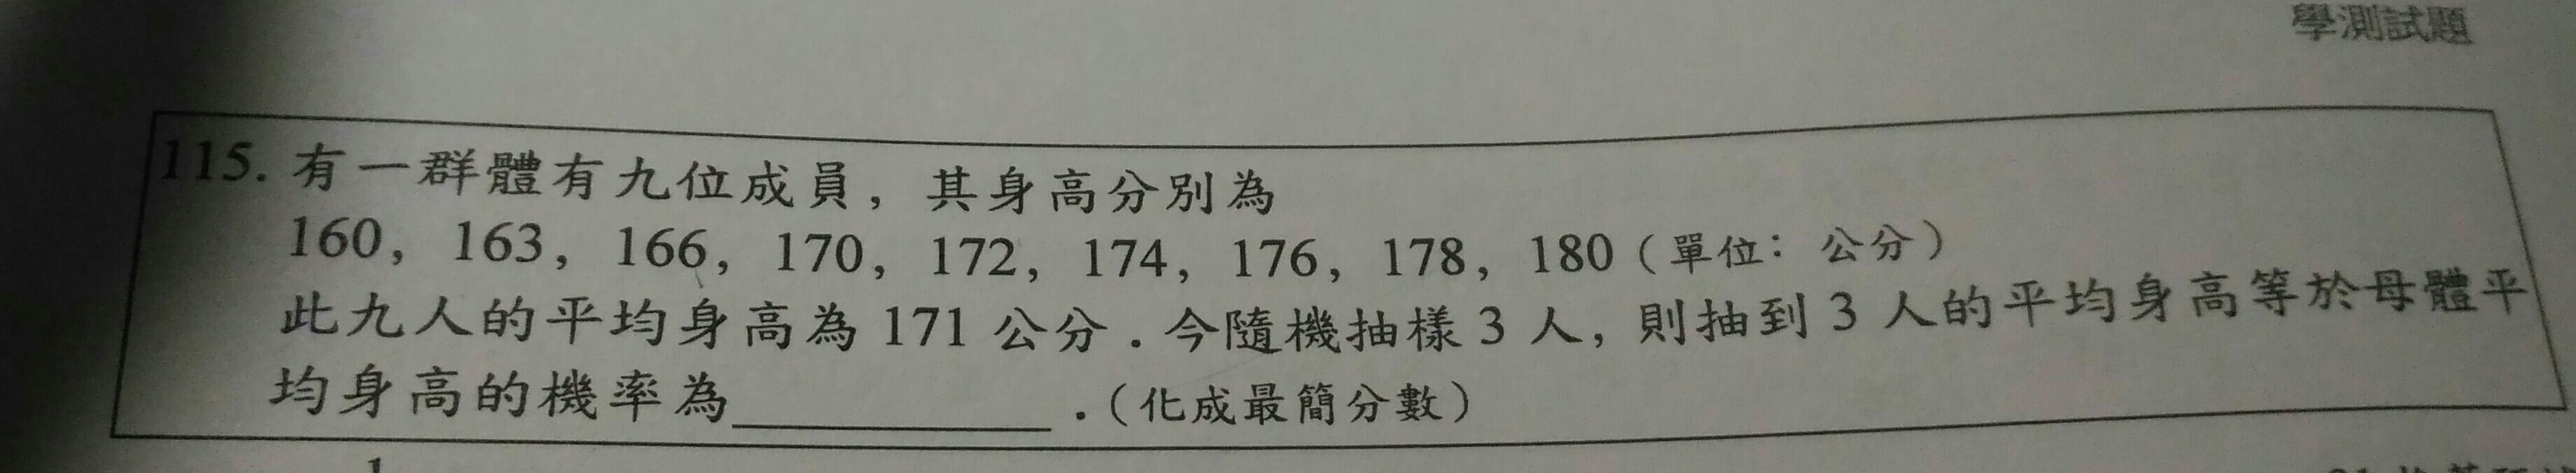 學測試題
115. 有一群體有九位成員，其身高分別為
160，163，166，170，172，174，176，178，180（單位：公分）
此九人的平均身高為 171 公分．今隨機抽樣 3 人，則抽到 3 人的平均身高等於母體平
均身高的機率為__________．（化成最簡分數）